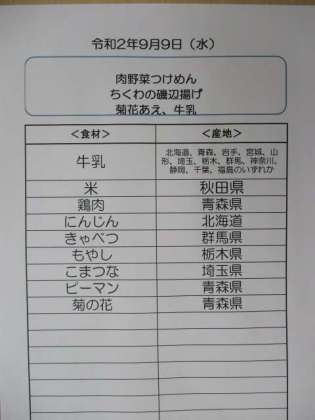 令和2年9月9日（水）
肉野菜つけめん
ちくわの磯辺揚げ
菊花あえ、牛乳
＜食材＞ ＜産地＞
牛乳 北海道、青森、岩手、宮城、山
形、埼玉、栃木、群馬、神奈川、
静岡、千葉、福島のいずれか
米 秋田県
鶏肉 青森県
にんじん 北海道
きゃべつ 群馬県
もやし 栃木県
こまつな 埼玉県
ピーマン 青森県
菊の花 青森県